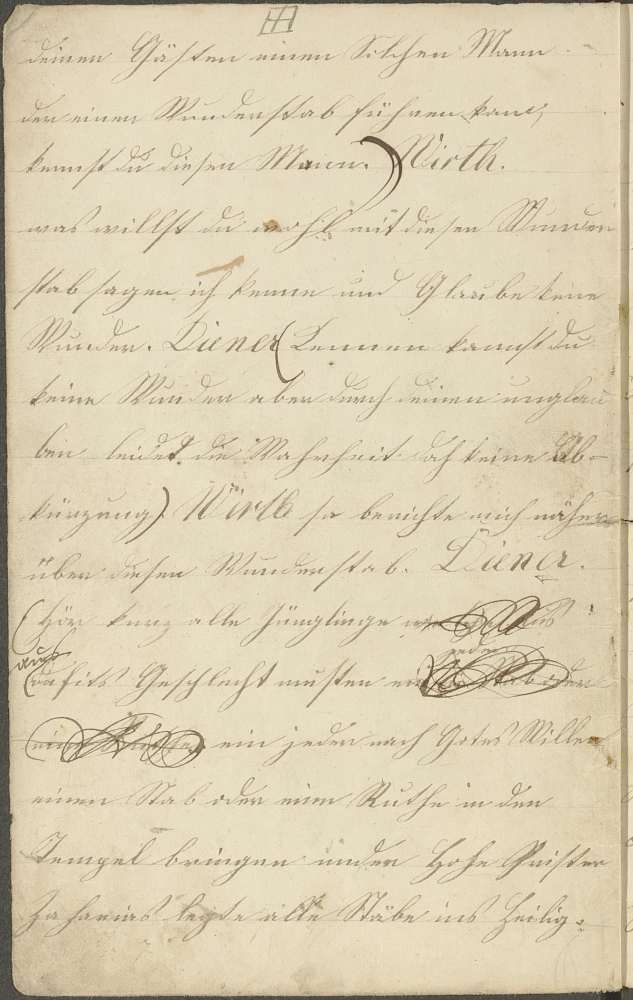 deinen Gästen einen Solchen Mann
der einen Wunderstab führen kan,
kennst du diesen Mann. Wirth.
was willst du wohl mit diesen Wunder
stab sagen ich kenne und Glaube keine
Wunder. Diener (Kennen kannst du
keine Wunder aber durch deinen unglau
ben leidet die Wahrheit doch keine Ab-
kürzung) Wirth so berichte mich näher
über diesen Wunderstab. Diener.
(Hör kurz alle Jünglinge aus
aus
dafits Geschlecht musten
jeder
ein jeder nach Gotes Willen
einen Stab oder eine Ruthe in den
Tempel bringen und der Hohe Prister
Zaharias legte alle Stäbe ins Heilig-